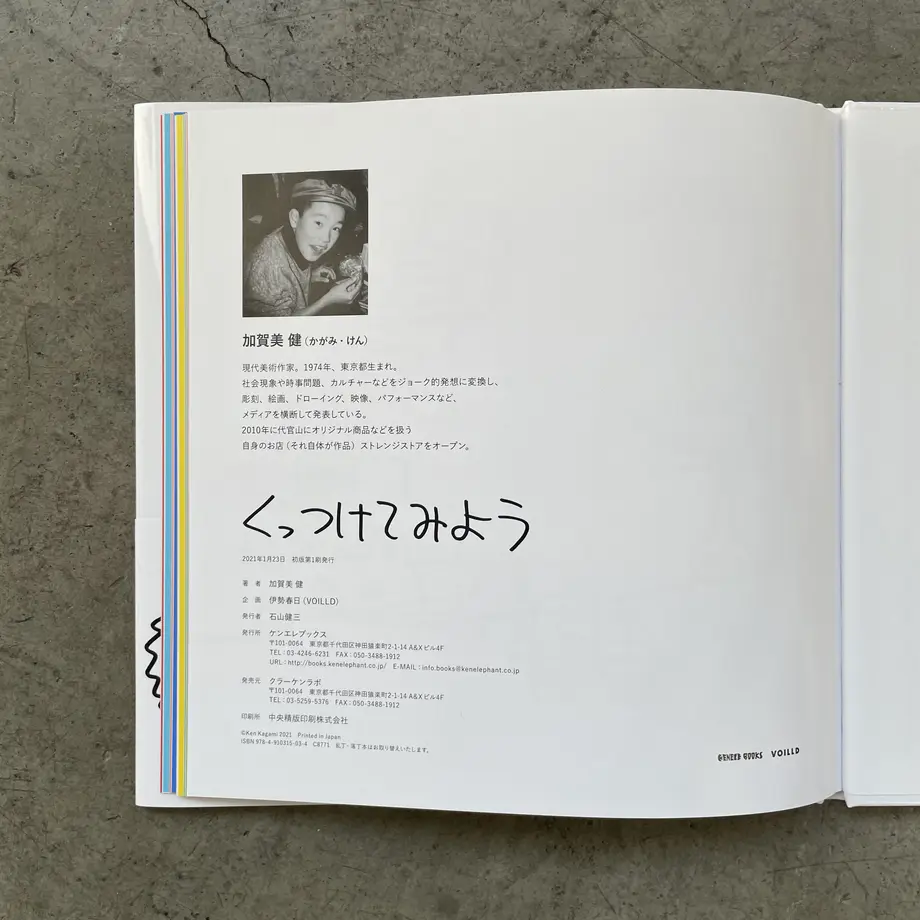 加賀美 健（かがみ・けん）
現代美術作家。1974年、東京都生まれ。
社会現象や時事問題、カルチャーなどをジョーク的発想に変換し、
彫刻、絵画、ドローイング、映像、パフォーマンスなど、
メディアを横断して発表している。
2010年に代官山にオリジナル商品などを扱う
自身のお店（それ自体が作品）ストレンジストアをオープン。
くっつけてみよう
2021年1月23日　初版第1刷発行
著　者　加賀美 健
企　画　伊勢春日（VOILLD）
発行者　石山健三
発行所　ケンエレブックス
〒101-0064　東京都千代田区神田猿楽町2-1-14 A&X ビル4F
TEL：03-4246-6231　FAX：050-3488-1912
URL：http://books.kenelephant.co.jp/　E-MAIL：info.books@kenelephant.co.jp
発売元　クラーケンラボ
〒101-0064　東京都千代田区神田猿楽町2-1-14 A&X ビル4F
TEL：03-5259-5376　FAX：050-3488-1912
印刷所　中央精版印刷株式会社
©Ken Kagami 2021　Printed in Japan
ISBN 978-4-910315-03-4　C8771　乱丁・落丁本はお取り替えいたします。
VOILLD